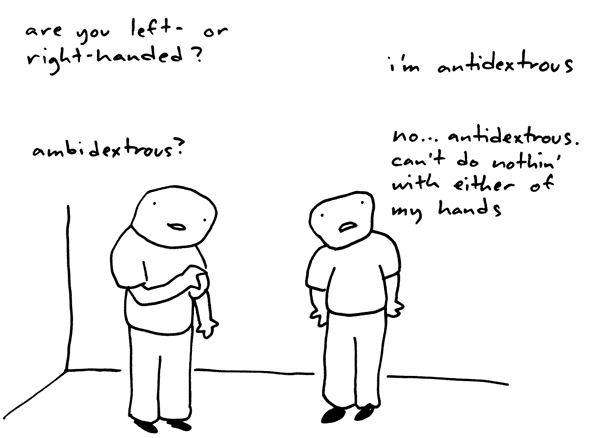 are you left- or
right-handed?
i'm antidextrous
ambidextrous?
no... antidextrous.
can't do nothin'
with either of
my hands